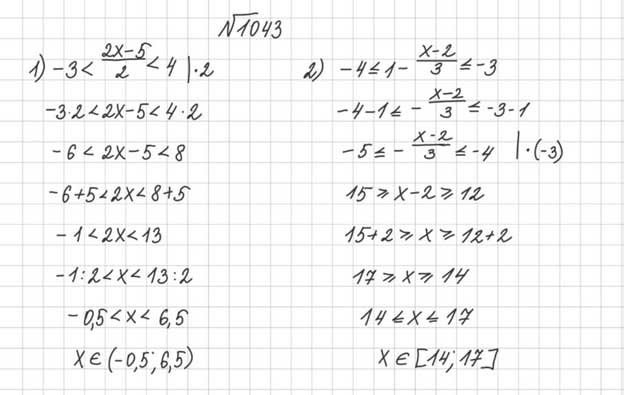 №1043
1) -3 < (2x-5)/2 < 4 |·2
-3·2 < 2x-5 < 4·2
-6 < 2x-5 < 8
-6+5 < 2x < 8+5
-1 < 2x < 13
-1:2 < x < 13:2
-0,5 < x < 6,5
x ∈ (-0,5; 6,5)
2) -4 ≤ 1 - (x-2)/3 ≤ -3
-4-1 ≤ - (x-2)/3 ≤ -3-1
-5 ≤ - (x-2)/3 ≤ -4 |·(-3)
15 ⩾ x-2 ⩾ 12
15+2 ⩾ x ⩾ 12+2
17 ⩾ x ⩾ 14
14 ≤ x ≤ 17
x ∈ [14; 17]